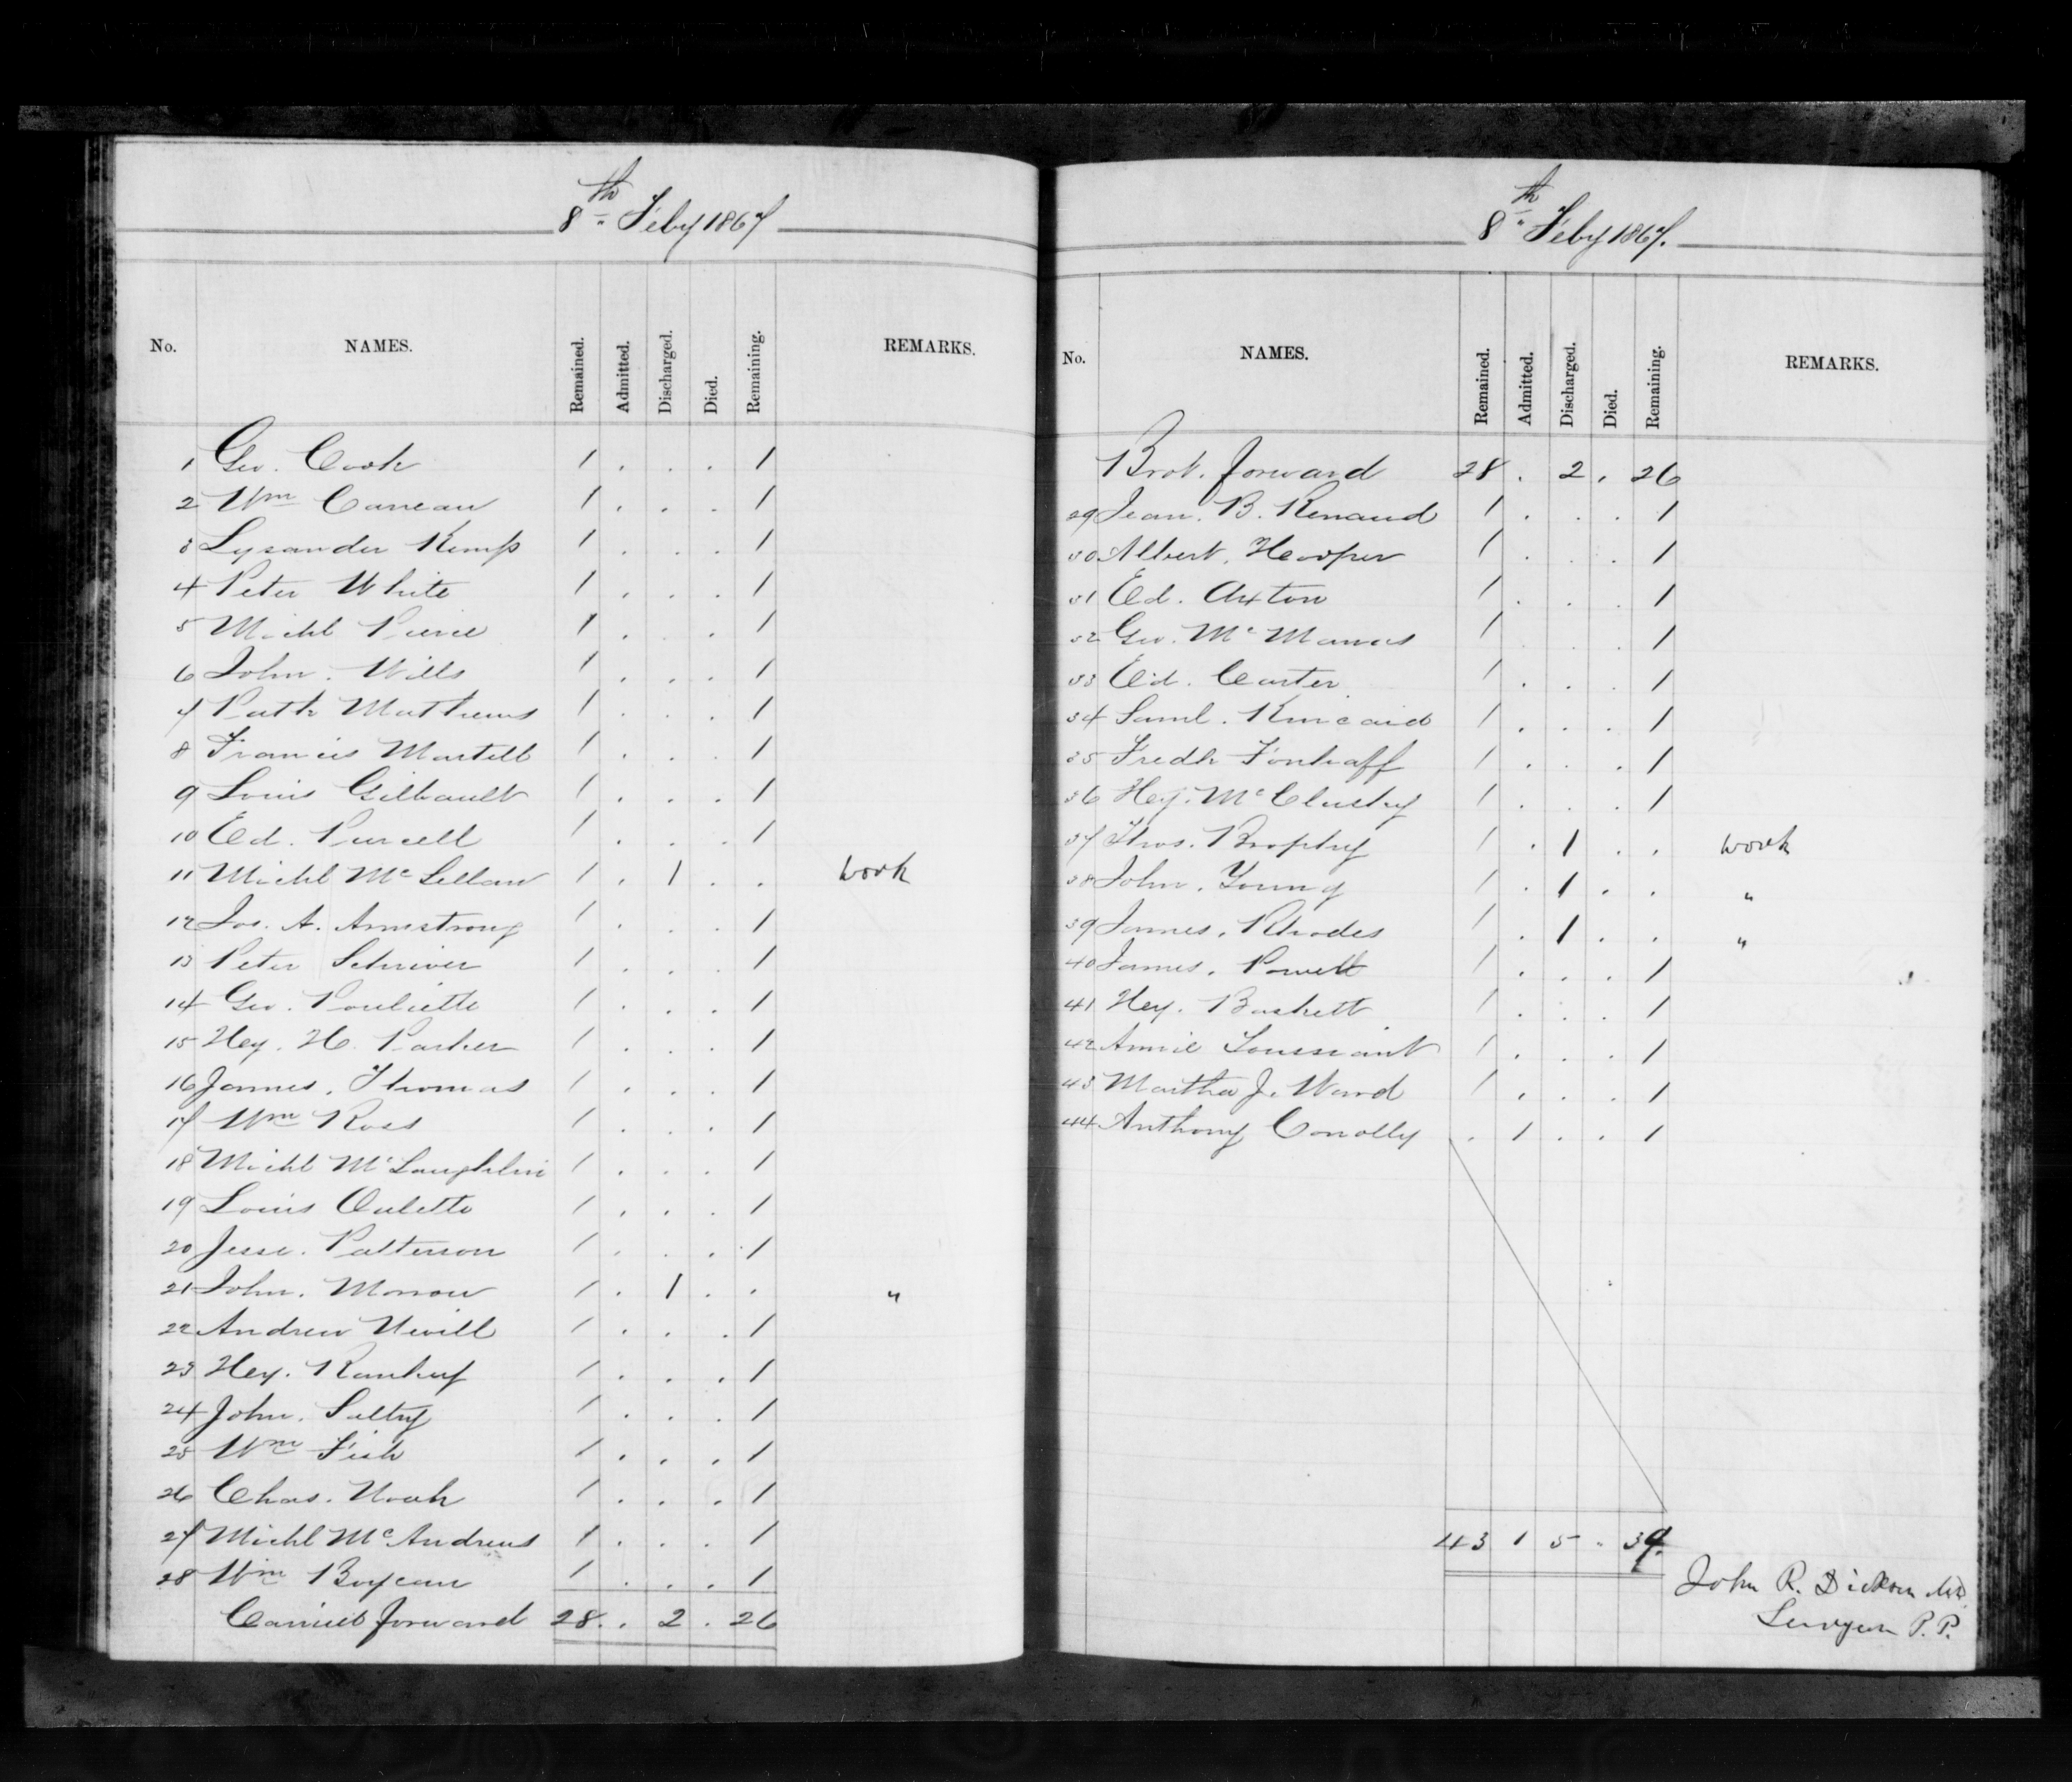 8th Feby 1867
No. NAMES. Remained. Admitted. Discharged. Died. Remaining. REMARKS.
1 Geo. Cook 1 . . . 1
2 Wm Careau 1 . . . 1
3 Lysander Kemp 1 . . . 1
4 Peter White 1 . . . 1
5 Michl Pierce 1 . . . 1
6 John. Wills 1 . . . 1
7 Patk Matthews 1 . . . 1
8 Francis Martell 1 . . . 1
9 Louis Gilbault 1 . . . 1
10 Ed. Purcell 1 . . . 1
11 Michl McLellan 1 . 1 . . work
12 Jos. A. Armstrong 1 . . . 1
13 Peter Schriver 1 . . . 1
14 Geo. Pouliette 1 . . . 1
15 Hey. H. Parker 1 . . . 1
16 James. Thomas 1 . . . 1
17 Wm Ross 1 . . . 1
18 Michl McLaughlin 1 . . . 1
19 Louis Oulette 1 . . . 1
20 Jesse. Patterson 1 . . . 1
21 John. Morrow 1 . 1 . . "
22 Andrew Nevill 1 . . . 1
23 Hey. Rankuf 1 . . . 1
24 John. Saltry 1 . . . 1
25 Wm Fish 1 . . . 1
26 Chas. Noah 1 . . . 1
27 Michl McAndrews 1 . . . 1
28 Wm Boyeau 1 . . . 1
Carried forward 28 . 2 . 26
8th Feby 1867.
No. NAMES. Remained. Admitted. Discharged. Died. Remaining. REMARKS.
Brot. forward 28 . 2 . 26
29 Jean. B. Renaud 1 . . . 1
30 Albert. Hooper 1 . . . 1
31 Ed. Axton 1 . . . 1
32 Geo. McManus 1 . . . 1
33 Ed. Carter 1 . . . 1
34 Saml. Kincaid 1 . . . 1
35 Fredk Fonhaff 1 . . . 1
36 Hey. McClusky 1 . . . 1
37 Thos. Brophy 1 . 1 . . work
38 John. Young 1 . 1 . . "
39 James. Rhodes 1 . 1 . . "
40 James. Powell 1 . . . 1
41 Hey. Baskett 1 . . . 1
42 Annie Toussiant 1 . . . 1
43 Martha J. Ward 1 . . . 1
44 Anthony Conolly . 1 . . 1
43 1 5 . 39.
John R. Dickson MD.
Surgeon P.P.